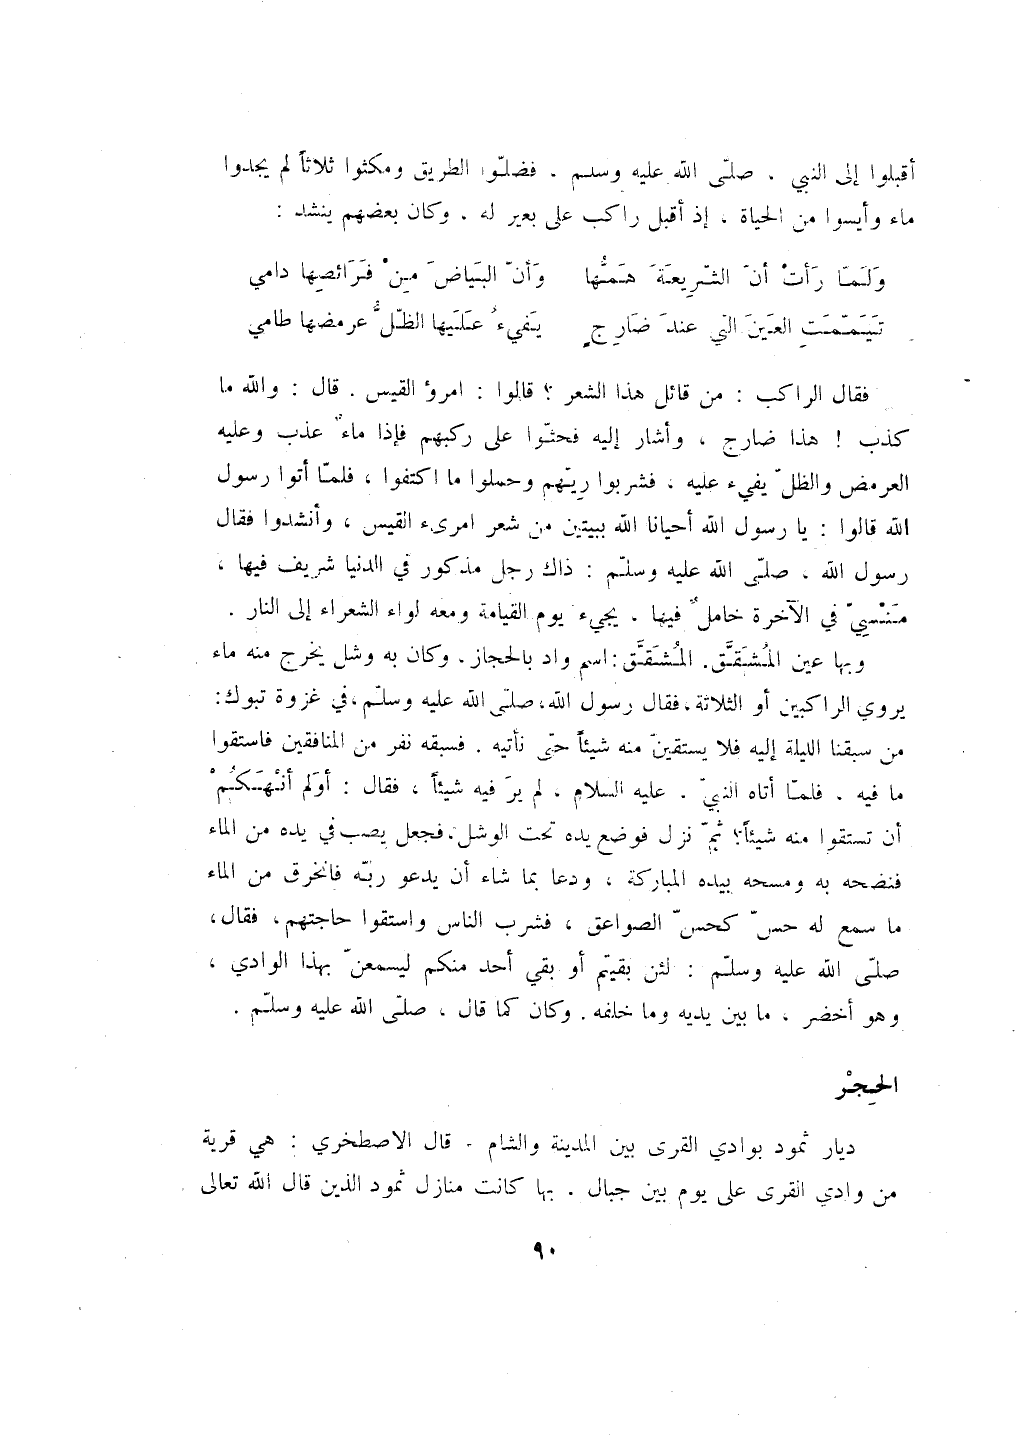 أقبلوا إلى النبي ، صلّى الله عليه وسلم ، فضلّوا الطريق ومكثوا ثلاثاً لم يجدوا
ماء وأيسوا من الحياة ، إذ أقبل راكب على بعير له ، وكان بعضهم ينشد :
وَلَمّا رَأتْ أنَ الشّرِيعَةَ هَمُّها وَأنّ البَيَاضَ مِنْ فَرَائصِها دامي
تَيَمّمَتِ العَينَ التي عندَ ضَارِجٍ يَفيءُ عَلَيها الظّلُّ عرمضها طامي
فقال الراكب : من قائل هذا الشعر ؟ قالوا : امرؤ القيس . قال : والله ما
كذب ! هذا ضارج ، وأشار إليه فحثّوا على ركبهم فإذا ماءٌ عذب وعليه
العرمض والظلّ يفيء عليه ، فشربوا ريّهم وحملوا ما اكتفوا ، فلمّا أتوا رسول
الله قالوا : يا رسول الله أحيانا الله ببيتين من شعر امرىء القيس ، وأنشدوا فقال
رسول الله ، صلّى الله عليه وسلّم : ذاك رجل مذكور في الدنيا شريف فيها ،
مَنْسِيّ في الآخرة خاملٌ فيها ، يجيء يوم القيامة ومعه لواء الشعراء إلى النار .
وبها عين المُشَقَّق. المُشَقَّق: اسم واد بالحجاز. وكان به وشل يخرج منه ماء
يروي الراكبين أو الثلاثة، فقال رسول الله، صلّى الله عليه وسلّم، في غزوة تبوك:
من سبقنا الليلة إليه فلا يستقينّ منه شيئاً حتّى نأتيه . فسبقه نفر من المنافقين فاستقوا
ما فيه . فلمّا أتاه النبيّ ، عليه السلام ، لم يرَ فيه شيئاً ، فقال : أوَلم أنْهَكُمْ
أن تستقوا منه شيئاً؟ ثمّ نزل فوضع يده تحت الوشل، فجعل يصب في يده من الماء
فنضحه به ومسحه بيده المباركة ، ودعا بما شاء أن يدعو ربّه فانخرق من الماء
ما سمع له حسّ كحسّ الصواعق ، فشرب الناس واستقوا حاجتهم، فقال،
صلّى الله عليه وسلّم : لئن بقيتم أو بقي أحد منكم ليسمعنّ بهذا الوادي ،
وهو أخضر ، ما بين يديه وما خلفه . وكان كما قال ، صلّى الله عليه وسلّم .
الحِجْر
ديار ثمود بوادي القرى بين المدينة والشام . قال الاصطخري : هي قرية
من وادي القرى على يوم بين جبال . بها كانت منازل ثمود الذين قال الله تعالى
٩٠